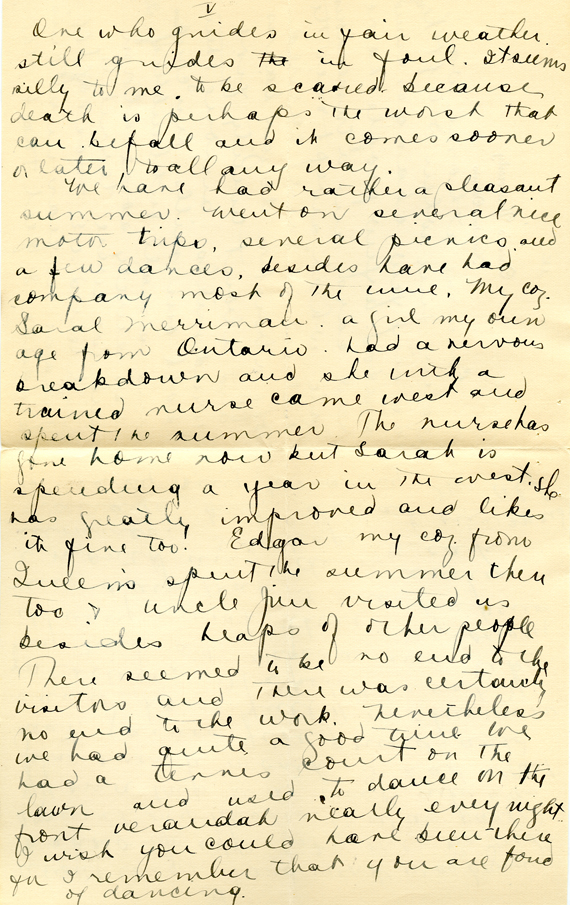 V
One who guides in fair weather
still guides the in foul. It seems
silly to me to be scared because
death is perhaps the worst that
can befall and it comes sooner
or later to all any way.
We have had rather a pleasant
summer. Went on several nice
motor trips, several picnics and
a few dances, besides have had
company most of the time. My coz.
Sarah Merriman. a girl my own
age from Ontario. had a nervous
breakdown and she with a
trained nurse came west and
spent the summer. The nurse has
gone home now but Sarah is
spending a year in the west. She
has greatly improved and likes
it fine too! Edgar my coz from
Queen's spent the summer there
too & Uncle Jim visited us
besides heaps of other people
There seemed to be no end to the
visitors and there was certainly
no end to the work. Nevertheless
we had quite a good time We
had a tennis court on the
lawn and used to dance on the
front verandah nearly every night
I wish you could have been there
for I remember that you are fond
of dancing.